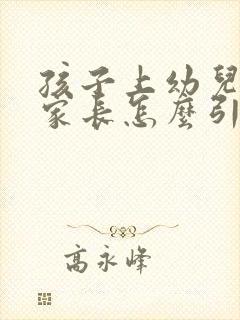 孩子上幼兒
家長怎麼引
高永峰